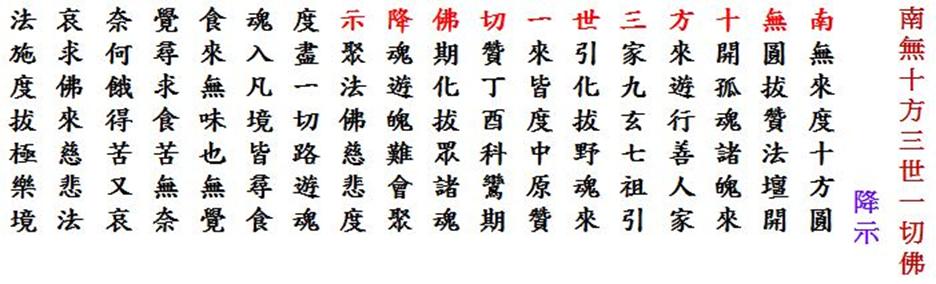 南無十方三世一切佛
降示
南無來度十方圓
無圓拔贊法壇開
十開孤魂諸魄來
方來遊行善人家
三家九玄七祖引
世引化拔野魂來
一來皆度中原贊
切贊丁酉科鸞期
佛期化拔眾諸魂
降魂遊魄難會聚
示聚法佛慈悲度
度盡一切路遊魂
魂入凡境皆尋食
食來無味也無覺
覺尋求食苦無奈
奈何餓得苦又哀
哀求佛來慈悲法
法施度拔極樂境